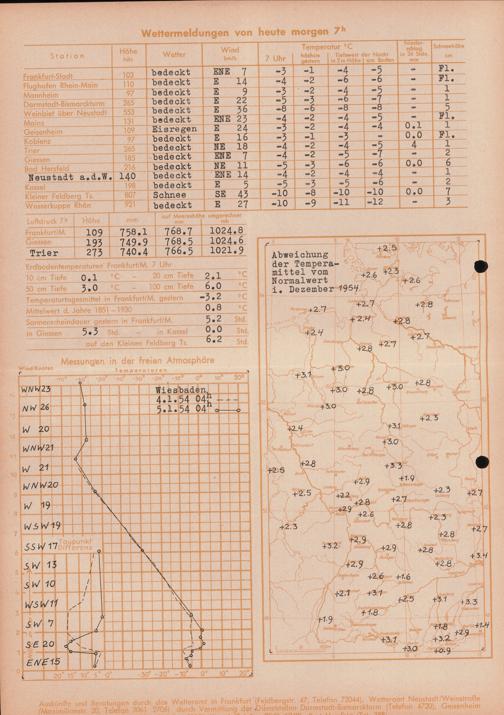 Wettermeldungen von heute morgen 7ʰ
Station Höhe Wetter Wind 7 Uhr Temperatur °C Schneehöhe
Frankfurt-Stadt 103 bedeckt ENE 7 -3 -1 -4 -5 Fl.
Flughafen Rhein-Main 110 bedeckt E 14 -4 -2 -6 -6 Fl.
Mannheim 97 bedeckt E 9 -3 -2 -4 -5 1
Darmstadt-Bismarckturm 265 bedeckt E 22 -5 -3 -6 -7 1
Weinbiet über Neustadt 553 bedeckt E 36 -8 -6 -8 -8 5
Mainz 131 bedeckt ENE 23 -4 -2 -4 -5 Fl.
Geisenheim 109 Eisregen E 24 -3 -2 -4 -4 0.1 1
Koblenz 97 bedeckt E 16 -3 -1 -3 0.0 Fl.
Trier 265 bedeckt NE 18 -4 -2 -4 -5 4 1
Giessen 185 bedeckt ENE 7 -4 -2 -5 -7 2
Bad Hersfeld bedeckt NE 11 -5 -3 -6 -6 0.0 6
Neustadt a.d.W. 140 bedeckt ENE 14 -4 -2 -4 -4 1
Kassel 198 bedeckt E 5 -5 -3 -5 -6 2
Kleiner Feldberg Ts. 807 Schnee SE 43 -10 -8 -10 -10 0.0 7
Wasserkuppe Rhön 921 bedeckt E 27 -10 -9 -11 -12 3
Luftdruck 7ʰ Höhe mm
Frankfurt/M. 109 758.1 768.7 1024.8
Giessen 193 749.9 768.5 1024.6
Trier 273 740.4 766.5 1021.9
Erdbodentemperaturen Frankfurt/M. 7 Uhr
10 cm Tiefe 0.1 °C - 20 cm Tiefe 2.1 °C
50 cm Tiefe 3.0 °C - 100 cm Tiefe 6.0 °C
Temperaturtagesmittel in Frankfurt/M. gestern -3.2 °C
Mittelwert d. Jahre 1851-1930 0.8 °C
Sonnenscheindauer gestern in Frankfurt/M. 5.2 Std.
in Giessen 5.3 Std. - in Kassel 0.0 Std.
auf den Kleinen Feldberg Ts. 6.2 Std.
Messungen in der freien Atmosphäre
Wind/Knoten Temperaturen
Wiesbaden
4.1.54 04ʰ
5.1.54 04ʰ
WNW23
NW 26
W 20
WNW21
W 21
WNW20
W 19
WSW19
SSW17 Taupunkt Differenz
SW 13
SW 10
WSW11
SW 7
SE 20
ENE15
Abweichung
der Tempera-
mittel vom
Normalwert
i. Dezember 1954
+2.5
+2.6 +2.3
+2.6
+2.7 +2.7 +2.8
+2.4 +2.8
+2.4
+2.8 +2.7 +2.7
+3.1 +3.0
+3.0 +2.8 +3.0 +2.8
+3.0
+2.3
+2.4 +3.1
+3.0
+2.5 +2.8 +3.3
+2.9 +1.9
+2.5 +2.2 +2.8 +2.7 +2.3 +2.7
+2.9 +2.6
+2.3 +2.8 +2.7
+3.2 +2.9 +2.9 +2.8 +3.4
+2.9 +2.8
+2.6 +1.6
+2.1 +3.1 +2.5 +3.1 +3.3
+1.9 +1.8 +1.8 +1.4
+3.1 +3.2 +2.9
+3.0 +0.9
Auskünfte und Beratungen durch das Wetteramt in Frankfurt (Feldbergstr. 47, Telefon 72044), Wetteramt Neustadt/Weinstraße